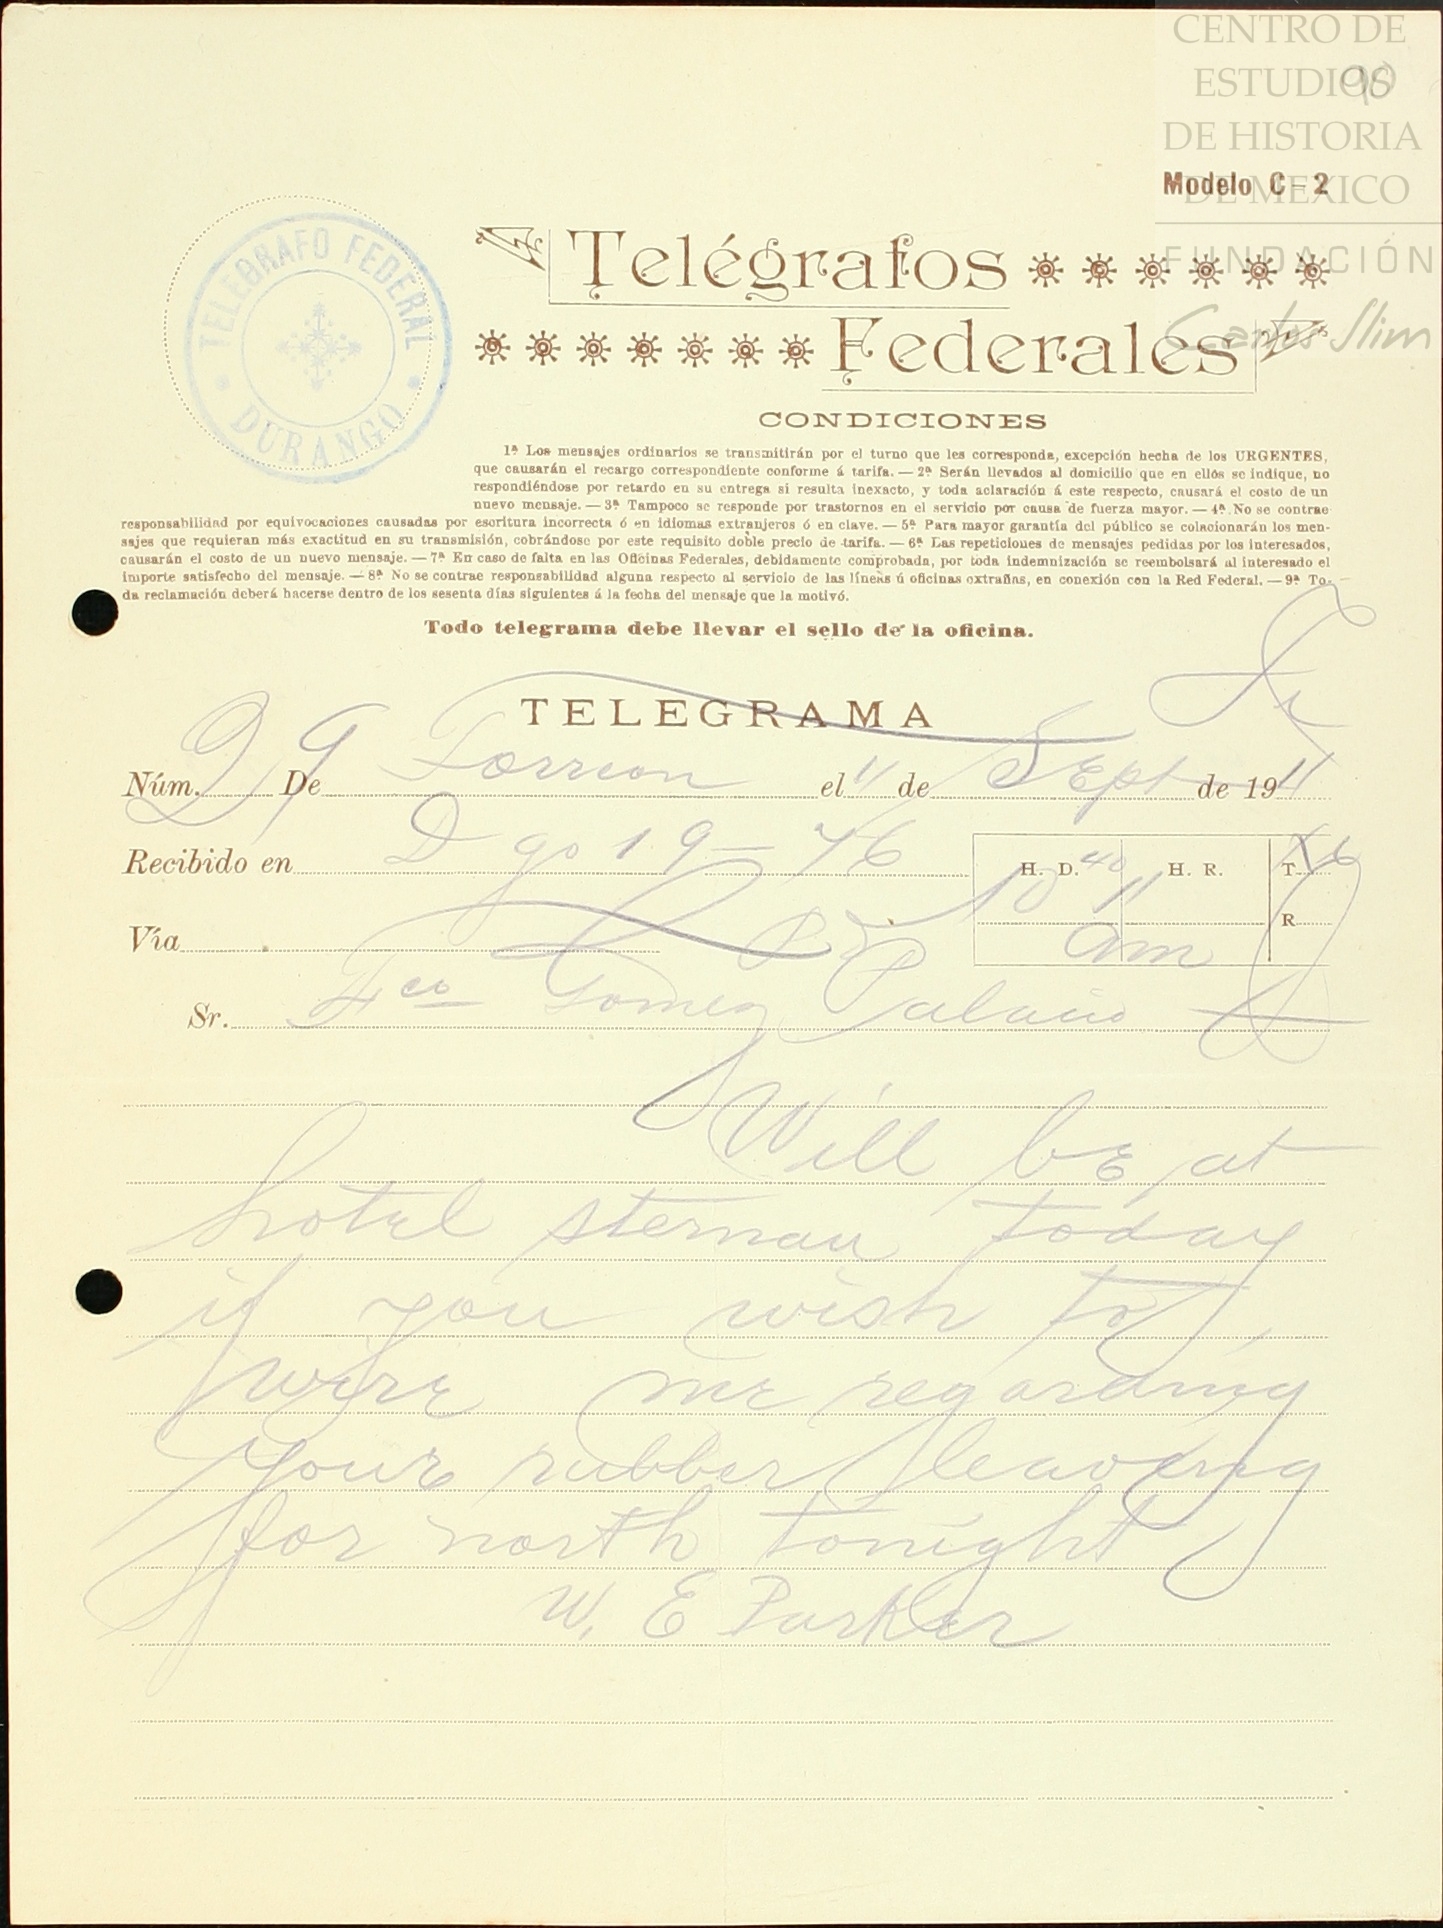 CENTRO DE
ESTUDIOS
90
DE HISTORIA
DE MEXICO
Modelo C-2
FUNDACIÓN
Carlos Slim
TELEGRAFO FEDERAL
DURANGO
Telégrafos
Federales
CONDICIONES
1ª Los mensajes ordinarios se transmitirán por el turno que les corresponda, excepción hecha de los URGENTES,
que causarán el recargo correspondiente conforme á tarifa. — 2ª Serán llevados al domicilio que en ellos se indique, no
respondiéndose por retardo en su entrega si resulta inexacto, y toda aclaración á este respecto, causará el costo de un
nuevo mensaje. — 3ª Tampoco se responde por trastornos en el servicio por causa de fuerza mayor. — 4ª No se contrae
responsabilidad por equivocaciones causadas por escritura incorrecta ó en idiomas extranjeros ó en clave. — 5ª Para mayor garantía del público se colacionarán los men-
sajes que requieran más exactitud en su transmisión, cobrándose por este requisito doble precio de tarifa. — 6ª Las repeticiones de mensajes pedidas por los interesados,
causarán el costo de un nuevo mensaje. — 7ª En caso de falta en las Oficinas Federales, debidamente comprobada, por toda indemnización se reembolsará al interesado el
importe satisfecho del mensaje. — 8ª No se contrae responsabilidad alguna respecto al servicio de las líneas ú oficinas extrañas, en conexión con la Red Federal. — 9ª To-
da reclamación deberá hacerse dentro de los sesenta días siguientes á la fecha del mensaje que la motivó.
Todo telegrama debe llevar el sello de la oficina.
TELEGRAMA
Núm. 29 De Torreon el 11 de Sept de 1911
Recibido en Dgo 19-76 H. D. 10 40 H. R. 11 T.
Vía am R
Sr. Fco Gomez Palacio
Will be at
hotel sternau today
if you wish to
wire me regarding
your rubber leaving
for north tonight
W. E Parker